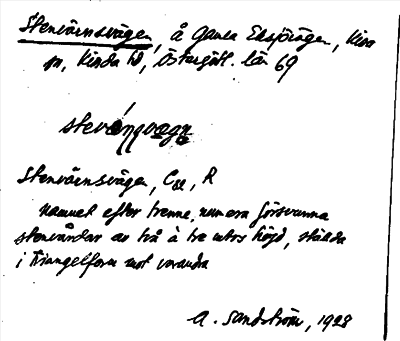 Stenvärnsvägen, å Gamla Eksjövägen, Kisa
sn, Kinda hd, Östergötl. län 69
Stenvärnsvägen, R
Namnet efter trenne, numera försvunna
stenvårdar av två à tre mtrs höjd, ställda
i triangelform mot varandra
A. Sandström, 1928